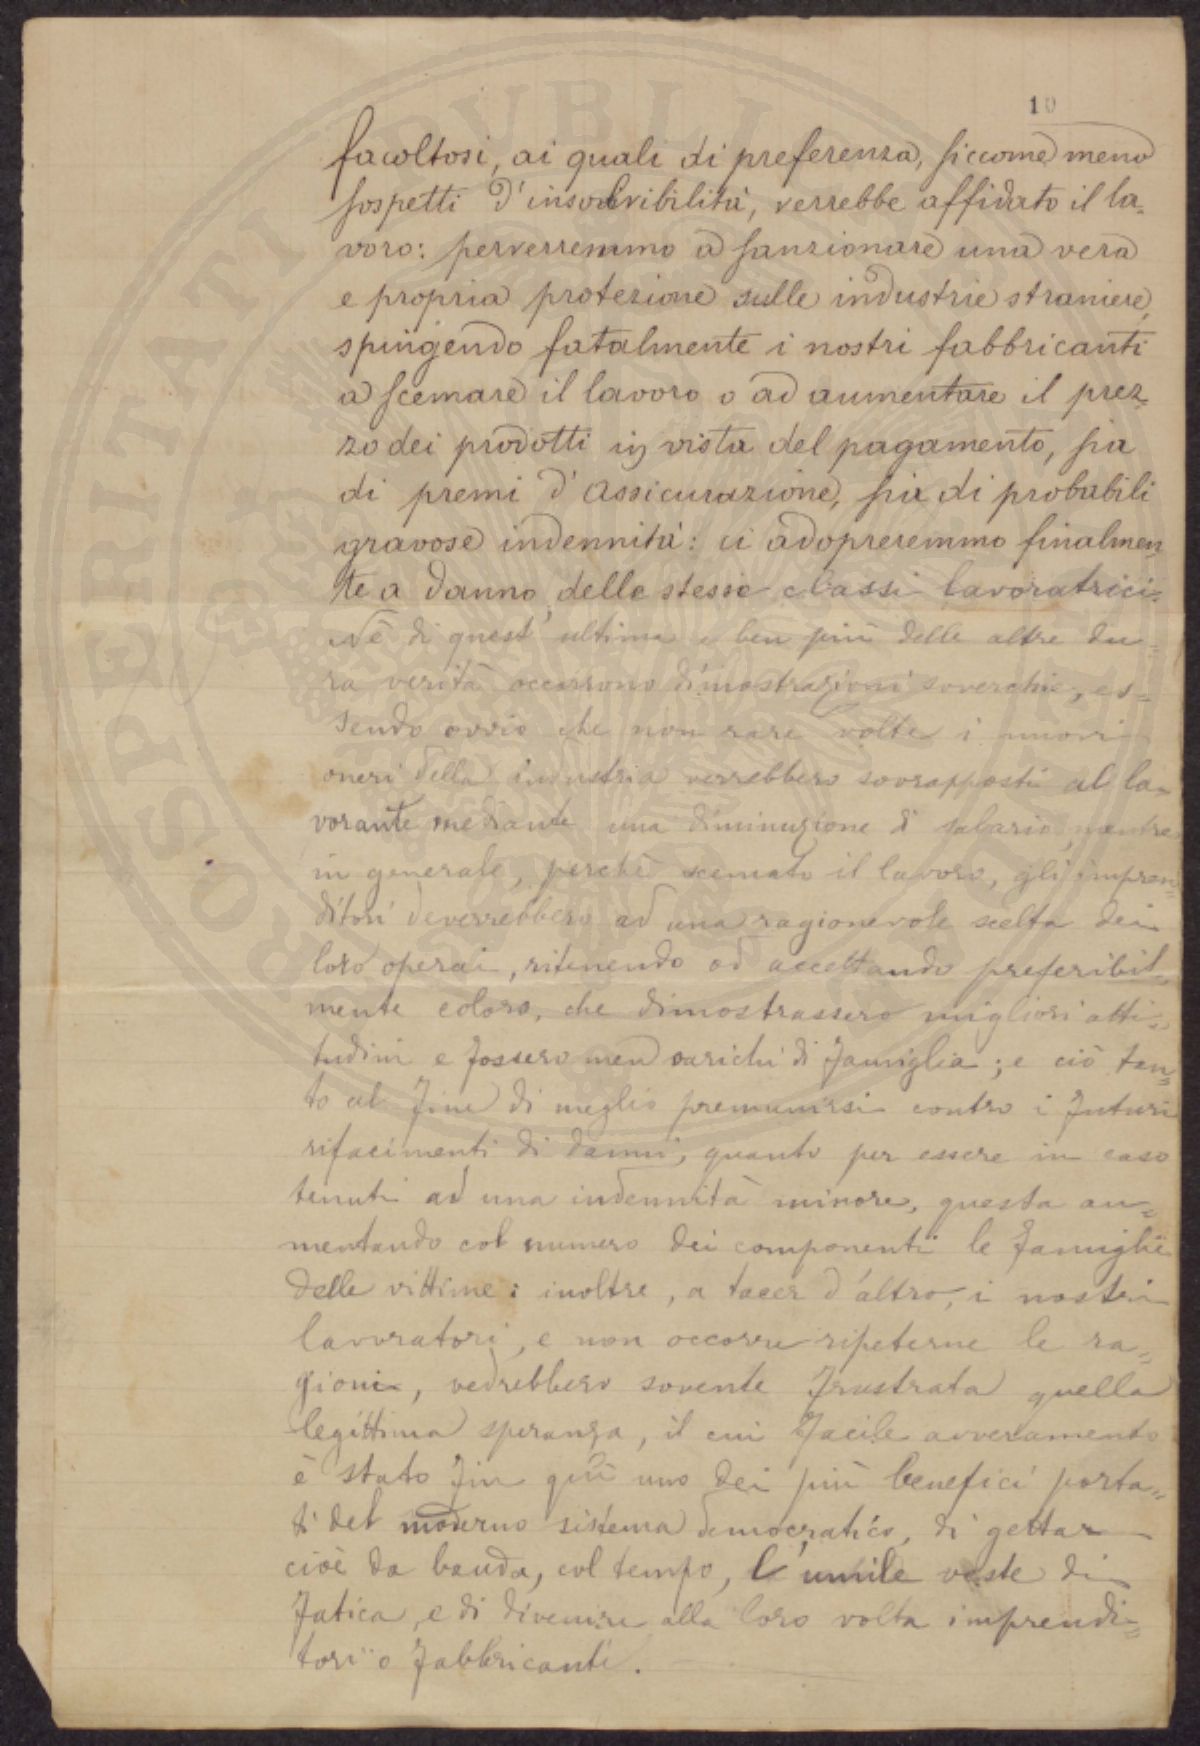 10
facoltosi, ai quali di preferenza, siccome meno
sospetti d'insolvibilità, verrebbe affidato il la-
voro: perverremmo a sanzionare una vera
e propria protezione sulle industrie straniere,
spingendo fatalmente i nostri fabbricanti
a scemare il lavoro o ad aumentare il prez-
zo dei prodotti in vista del pagamento, sia
di premi d'assicurazione, sia di probabili
gravose indennità: ci adopreremmo finalmen-
te a danno delle stesse classi lavoratrici.
Nè di quest'ultima e ben più delle altre du-
ra verità occorrono dimostrazioni soverchie, es-
sendo ovvio che non rare volte i nuovi
oneri della industria verrebbero sovrapposti al la-
vorante mediante una diminuzione di salario, mentre
in generale, perchè scemato il lavoro, gli impren-
ditori deverrebbero ad una ragionevole scelta dei
loro operai, ritenendo od accettando preferibil-
mente coloro, che dimostrassero migliori atti-
tudini e fossero men carichi di famiglia; e ciò tan-
to al fine di meglio premunirsi contro i futuri
rifacimenti di danni, quanto per essere in caso
tenuti ad una indennità minore, questa au-
mentando col numero dei componenti le famiglie
delle vittime: inoltre, a tacer d'altro, i nostri
lavoratori, e non occorre ripeterne le ra-
gioni, vedrebbero sovente frustrata quella
legittima speranza, il cui facile avveramento
è stato fin quì uno dei più benefici porta-
ti del moderno sistema democratico, di gettar
cioè da banda, col tempo, l'umile veste di
fatica, e di divenire alla loro volta imprendi-
tori o fabbricanti.
PROSPERITATI PUBLI